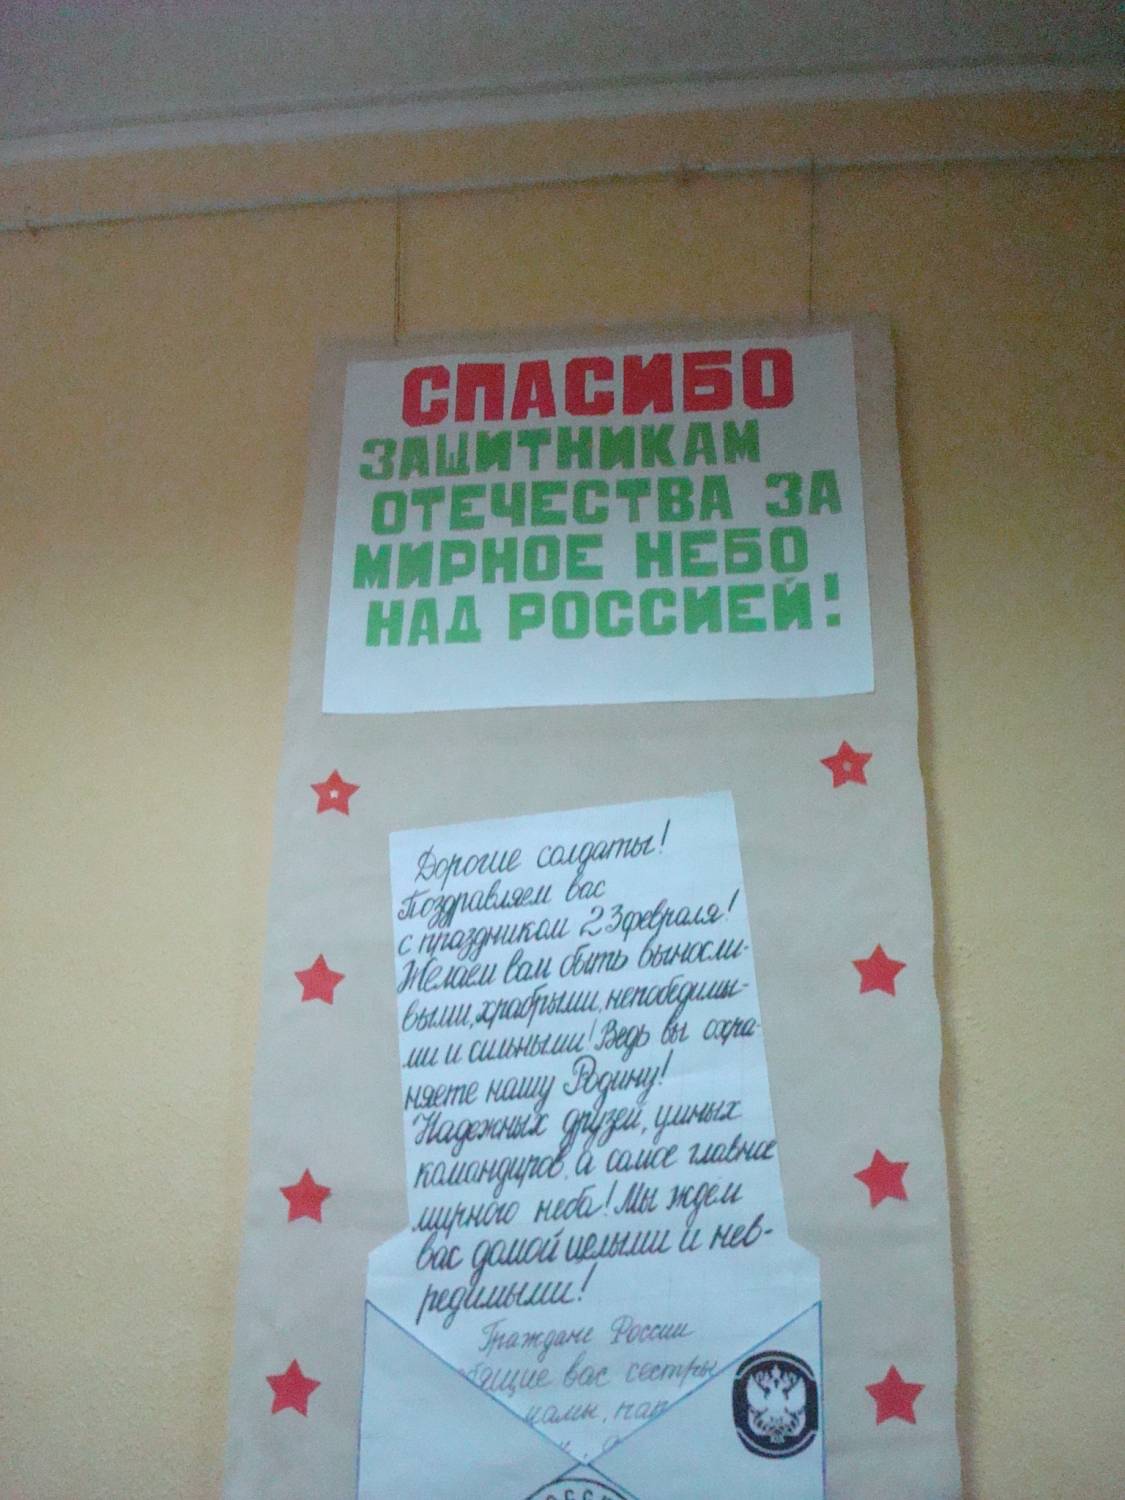 СПАСИБО
ЗАЩИТНИКАМ
ОТЕЧЕСТВА ЗА
МИРНОЕ НЕБО
НАД РОССИЕЙ!
Дорогие солдаты!
Поздравляем вас
с праздником 23 февраля!
Желаем вам быть выносли-
выми, храбрыми, непобедимы-
ми и сильными! Ведь вы охра-
няете нашу Родину!
Надежных друзей, умных
командиров, а самое главное
мирного неба! Мы ждём
вас домой целыми и нев-
редимыми!
Граждане России
вас сестры
мамы,